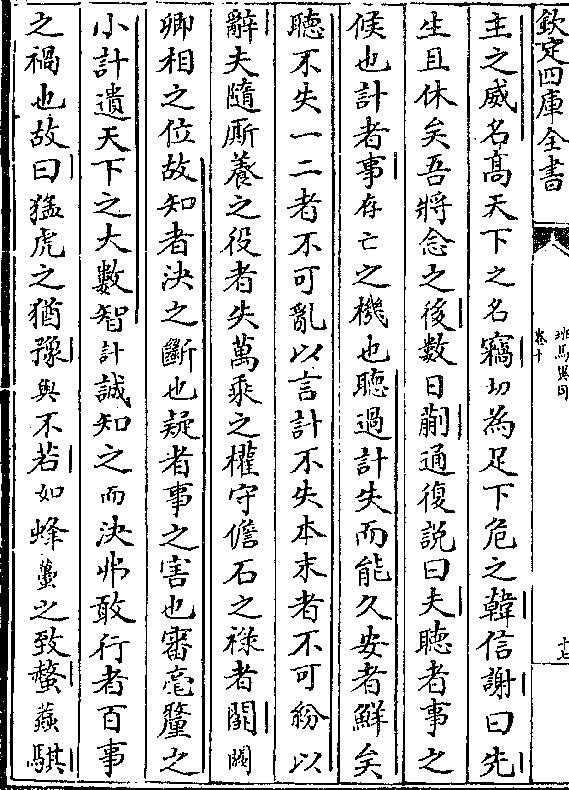 欽定四庫全書
班馬異同
卷十
十七
主之威名髙天下之名竊切為足下危之韓信謝曰先
生且休矣吾將念之後數日蒯通復説曰夫聽者事之
候也計者事存亡之機也聽過計失而能久安者鮮矣
聽不失一二者不可亂以言計不失本末者不可紛以
辭夫隨厮養之役者失萬乘之權守儋石之禄者闕
卿相之位故知者決之斷也疑者事之害也審毫釐之
小計遺天下之大數智計誠知之而決弗敢行者百事
之禍也故曰猛虎之猶豫與不若如蜂蠆之致螫蠚騏